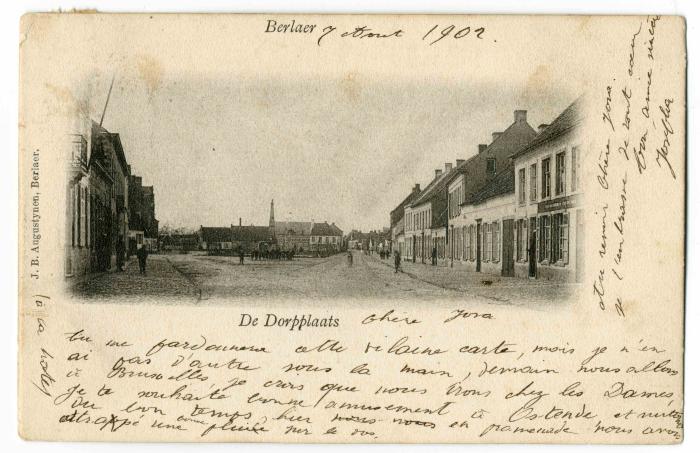 Berlaer 7 Aout 1902.
J. B. Augustynen, Berlaer.
De Dorpplaats Chère Josa
tu me pardonnera cette vilaine carte, mais je n'en
ai pas d'autre sous la main, demain nous allons
à Bruxelles je crois que nous irons chez les Dames,
Je te souhaite bonne amusement à Ostende et surtout
du bon temps, hier nous nous en promenade nous avons
attrappé une pluie sur le dos.
au revoir Chère Josa.
je t'embrasse de tout cœur
ton amie
Josepha